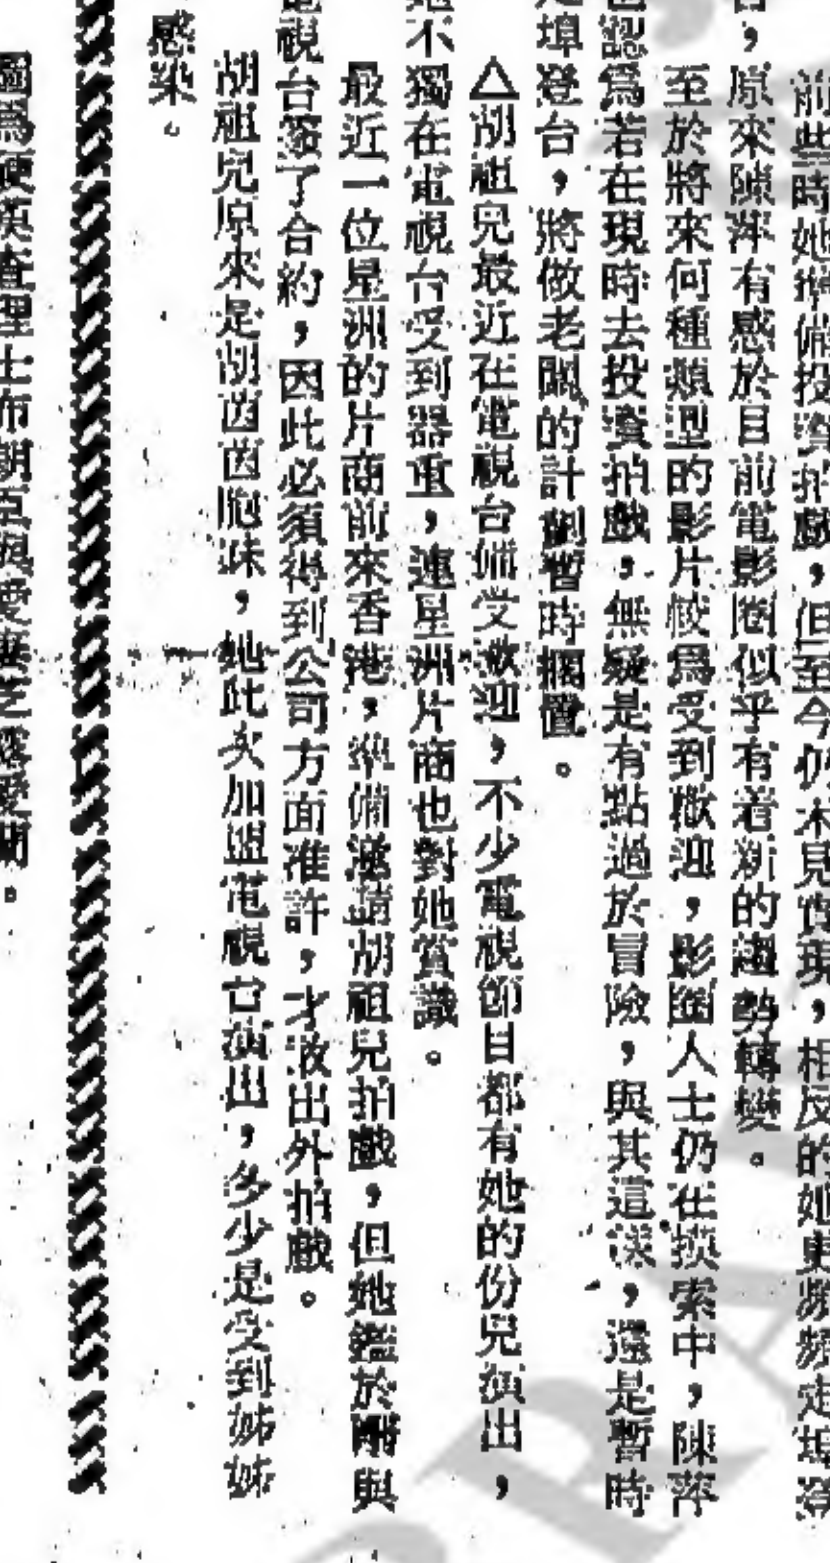 前些時她準備投資拍戲，但至今仍未見實現，相反的她更頻頻走埠登
，原來陳萍有感於目前電影圈似乎有着新的趨勢轉變。
至於將來何種類型的影片較爲受到歡迎，影圈人士仍在摸索中，陳萍
認爲若在現時去投資拍戲，無疑是有點過於冒險，與其這樣，還是暫時
埠登台，將做老闆的計劃暫時擱置。
△胡祖兒最近在電視台備受歡迎，不少電視節目都有她的份兒演出，
不獨在電視台受到器重，連星洲片商也對她賞識。
最近一位星洲的片商前來香港，準備邀請胡祖兒拍戲，但她鑑於剛與
電視台簽了合約，因此必須得到公司方面准許，才敢出外拍戲。
胡祖兒原來是胡茵茵胞妹，她此次加盟電視台演出，多少是受到姊姊
感染。